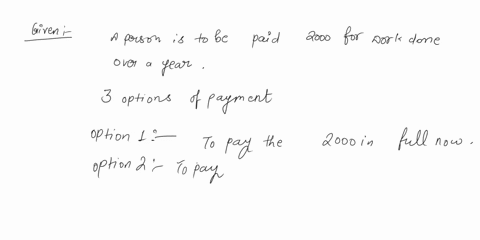 Given:-
A person is to be paid 2000 for work done
over a year.
3 options of payment
option 1:- To pay the 2000 in full now.
option 2:- To pay